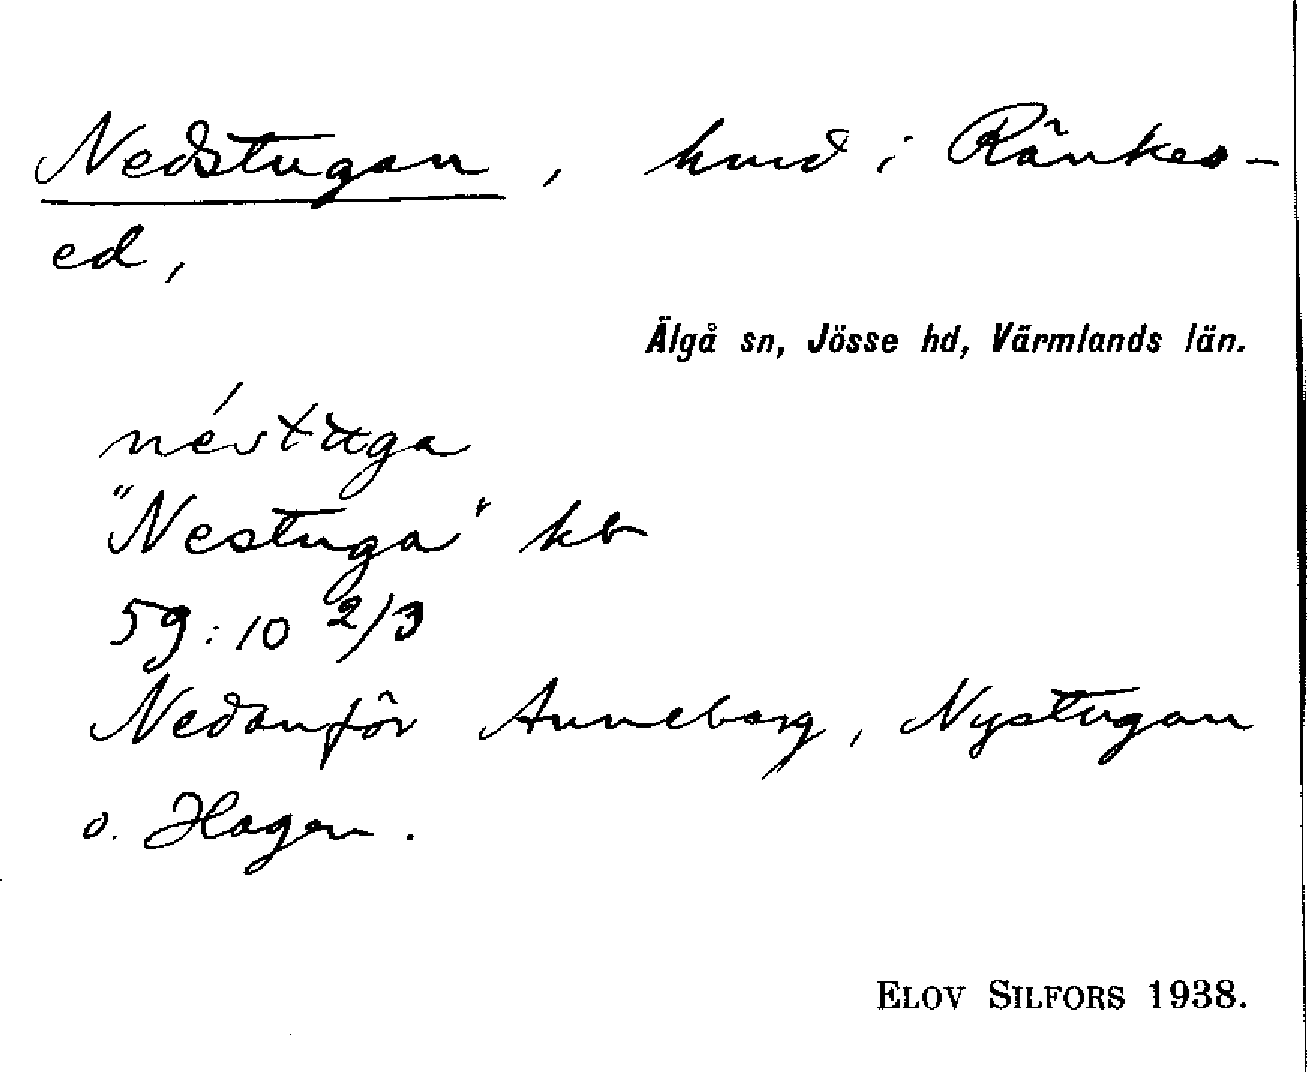 Nedstugan, hmd i Rānkes-
ed,
Älgå sn, Jösse hd, Värmlands län.
néstuga
"Nestuga" kb
59:10 2/3
Nedanför Anneborg, Nystugan
o. Hagen.
ELOV SILFORS 1938.